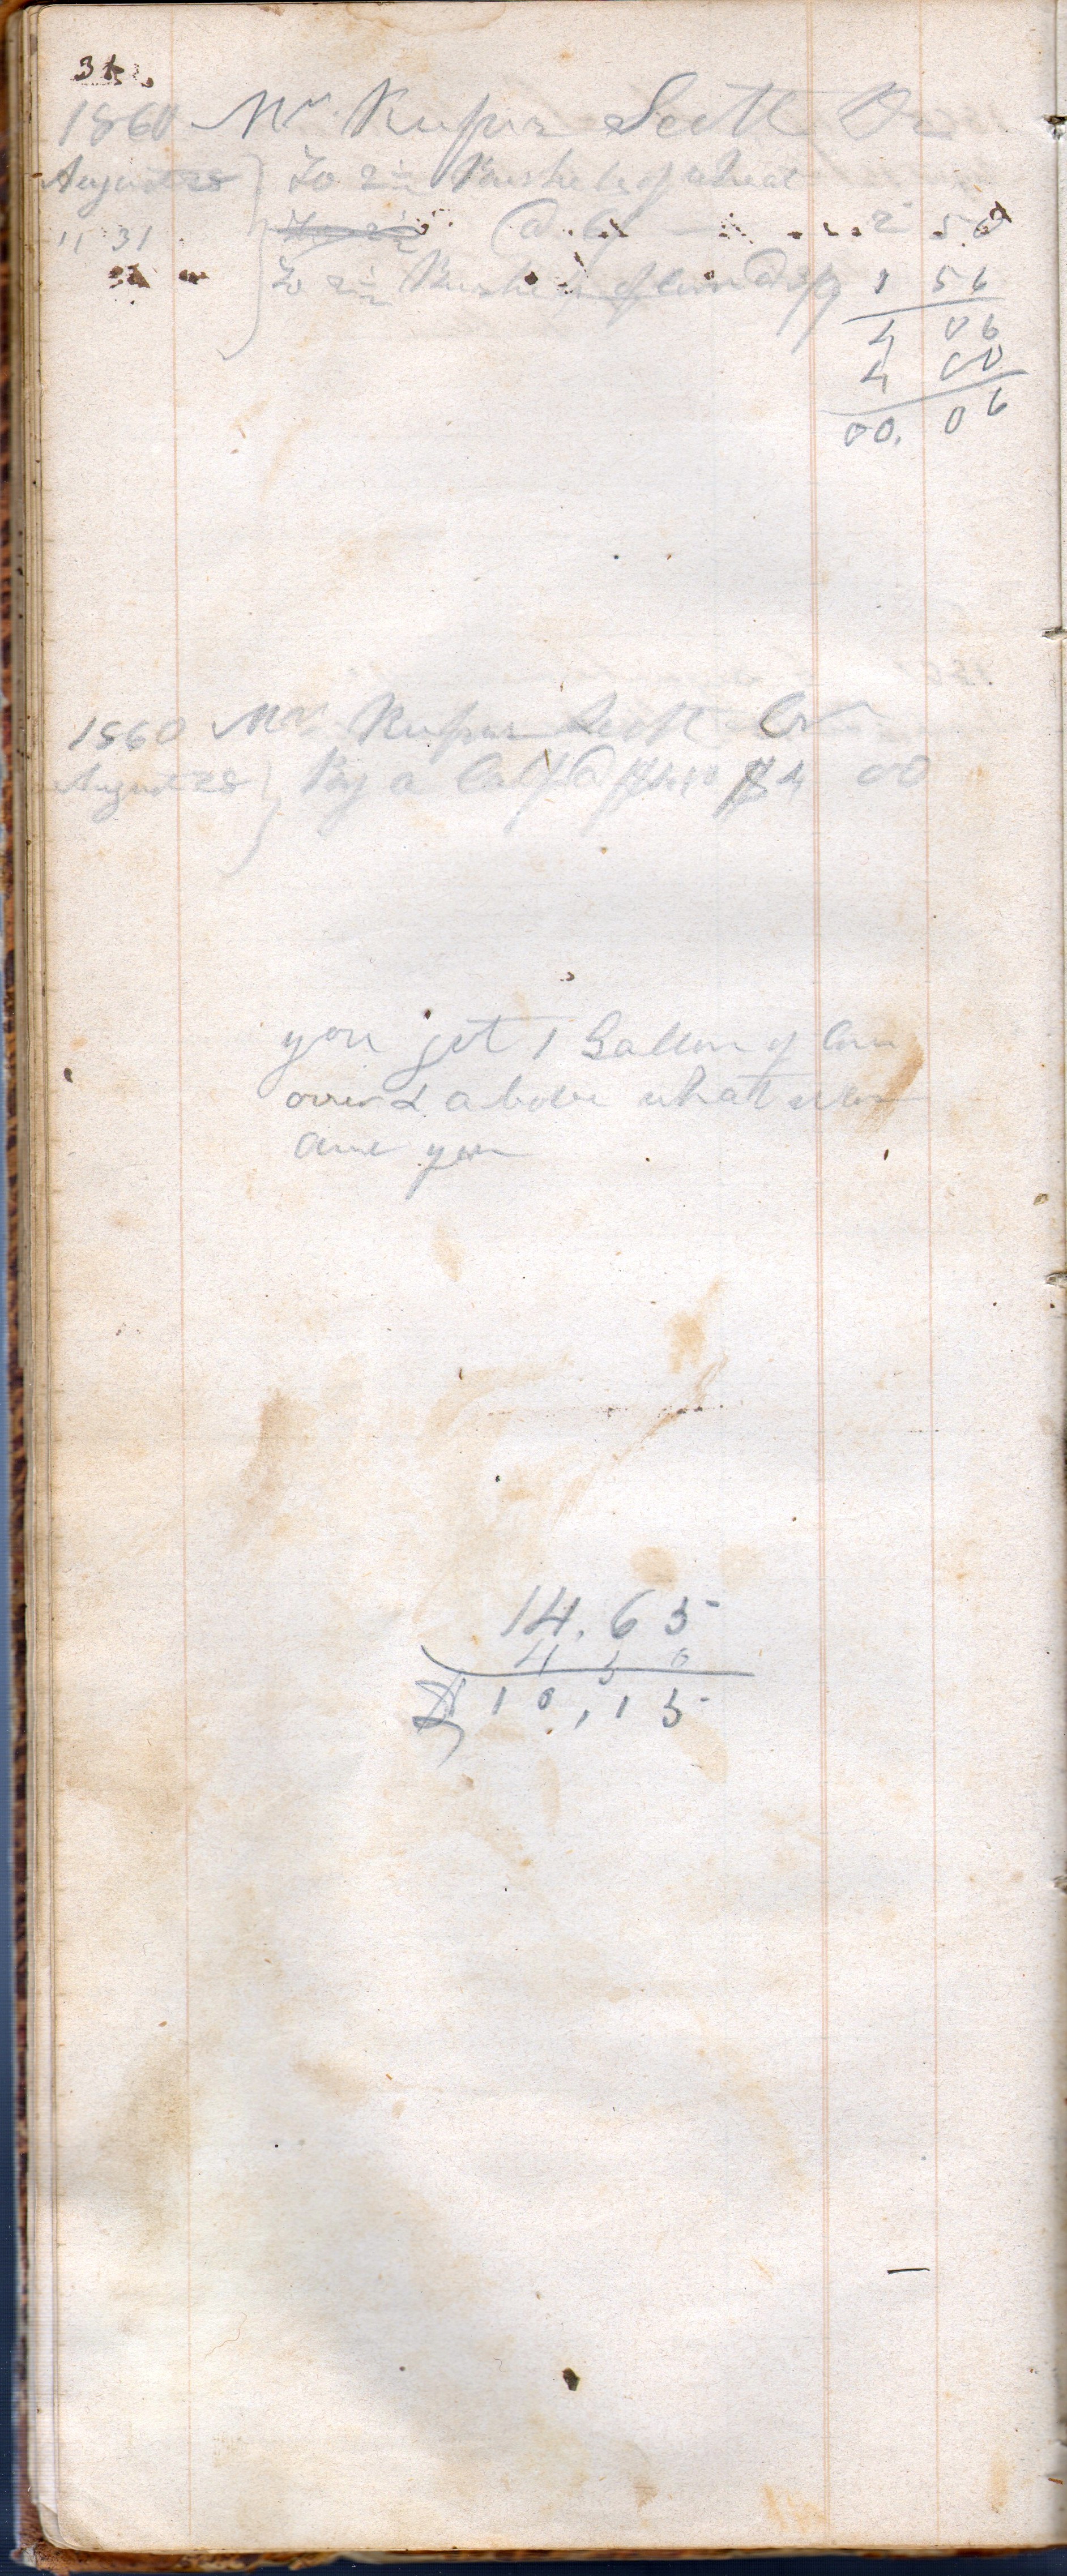 34.
1860 Mr Rufus Scott Dr
August 28 To 2½ Bushels of wheat
" 31 @ 6/ 2 50
To 2½ Bushels of corn @ 1 56
4 06
4 00
00. 06
1860 Mr Rufus Scott Cr
August 28 By a Calf @ $4,10 $4 00
you got 1 Gallon of Corn
over & above what was
due you
14.65
4 50
$10,15